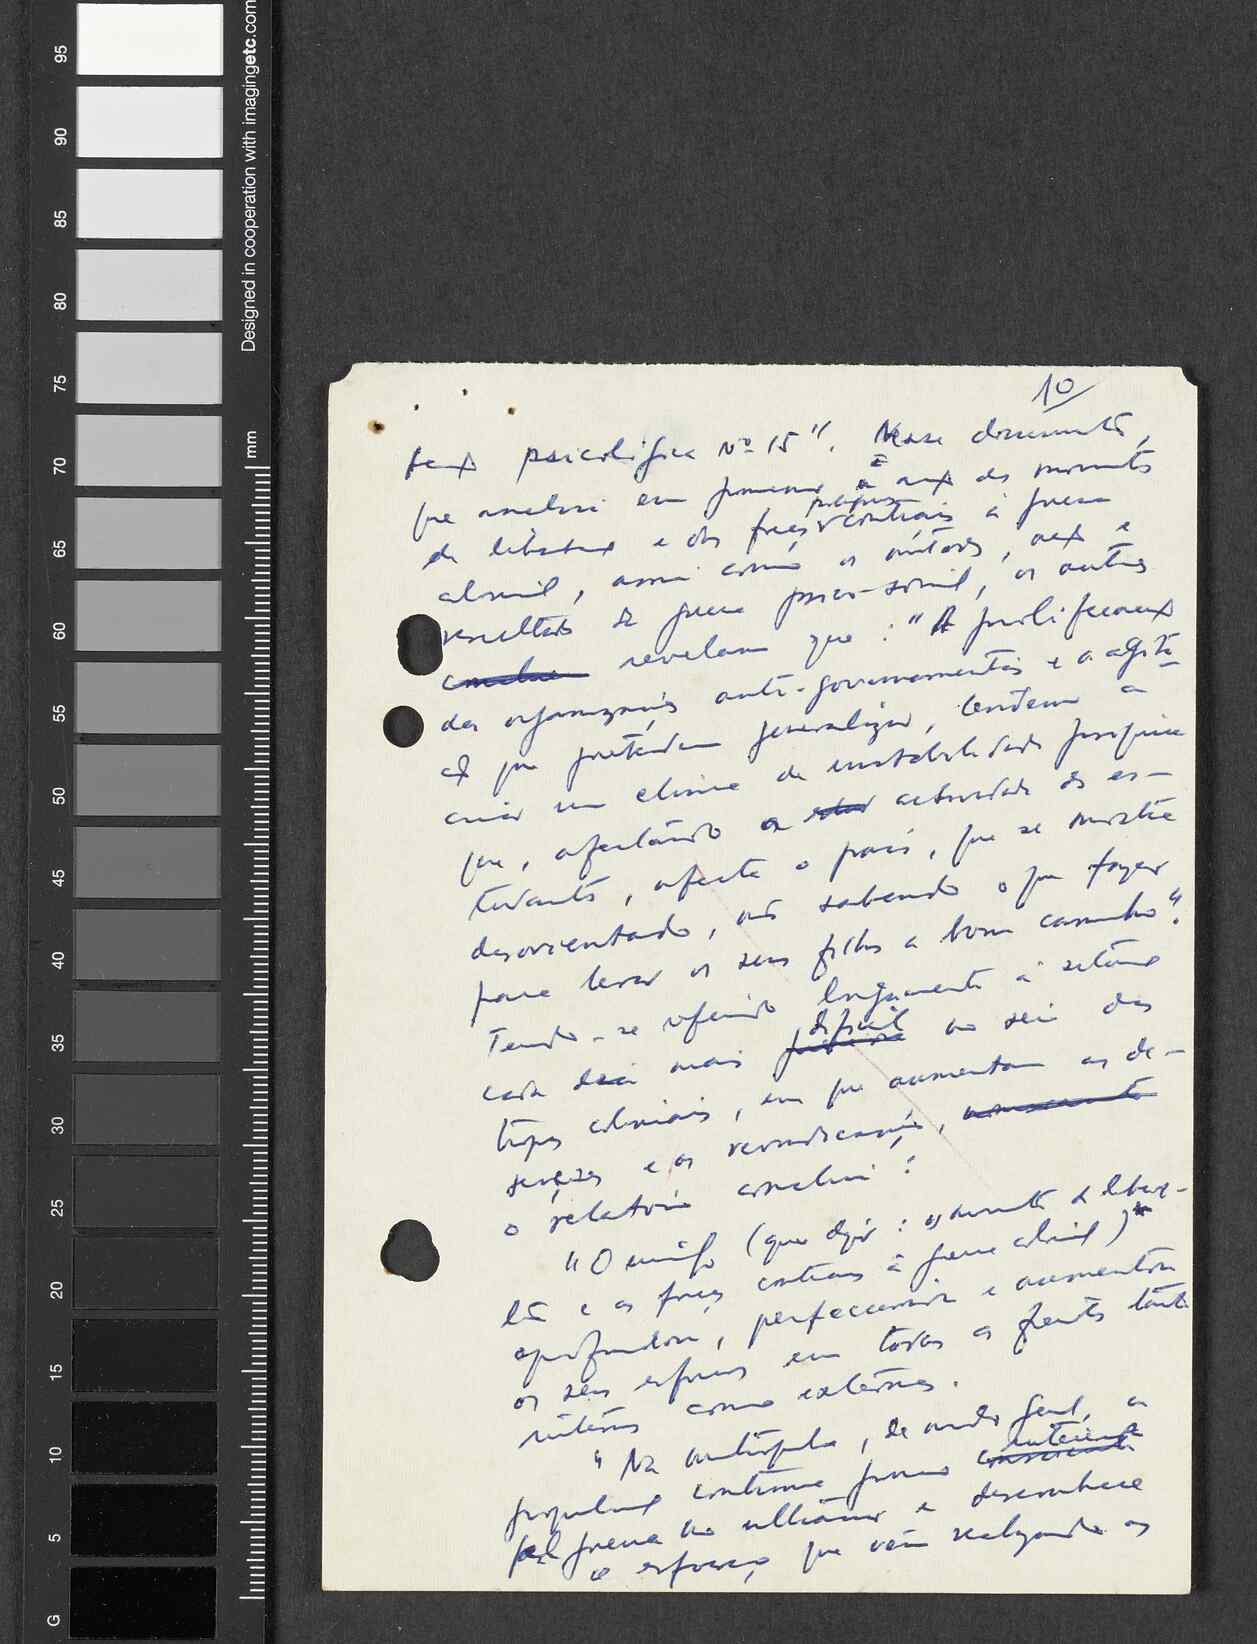 95
90
85
80
75
70
65
60
55
50
45
40
35
30
25
20
15
10
5
G
Designed in cooperation with imagingetc.com
mm
10
psicológica Nº 15". Nesse documento,
que analisa em pormenor a acção dos movimentos
de libertação e das forças portuguesas contrárias à guerra
colonial, assim como os
resultados da guerra psico-social, os autores
revelam que: "A proliferação
das organizações anti-governamentais e a agita-
ção que pretendem generalizar, tendem a
criar um clima de instabilidade porque
que, afectando a actividade dos es-
tudantes, afecta o país, que se mostra
desorientado, não sabendo o que fazer
para levar os seus filhos a bom caminho".
Tendo-se referido longamente à situação
cada dia mais difícil no seio das
tropas coloniais, em que aumentam as de-
serções e as reivindicações,
o relatório conclui:
"O inimigo (quer dizer: o movimento de liberta-
ção e as forças contrárias à guerra colonial)
aprofundou, perfeccionou e aumentou
os seus esforços em todas as frentes tanto
internas como externas.
"Na metrópole, de modo geral, a
população continua pouco
pela guerra no ultramar e desconhece
o esforço que vêm realizando as